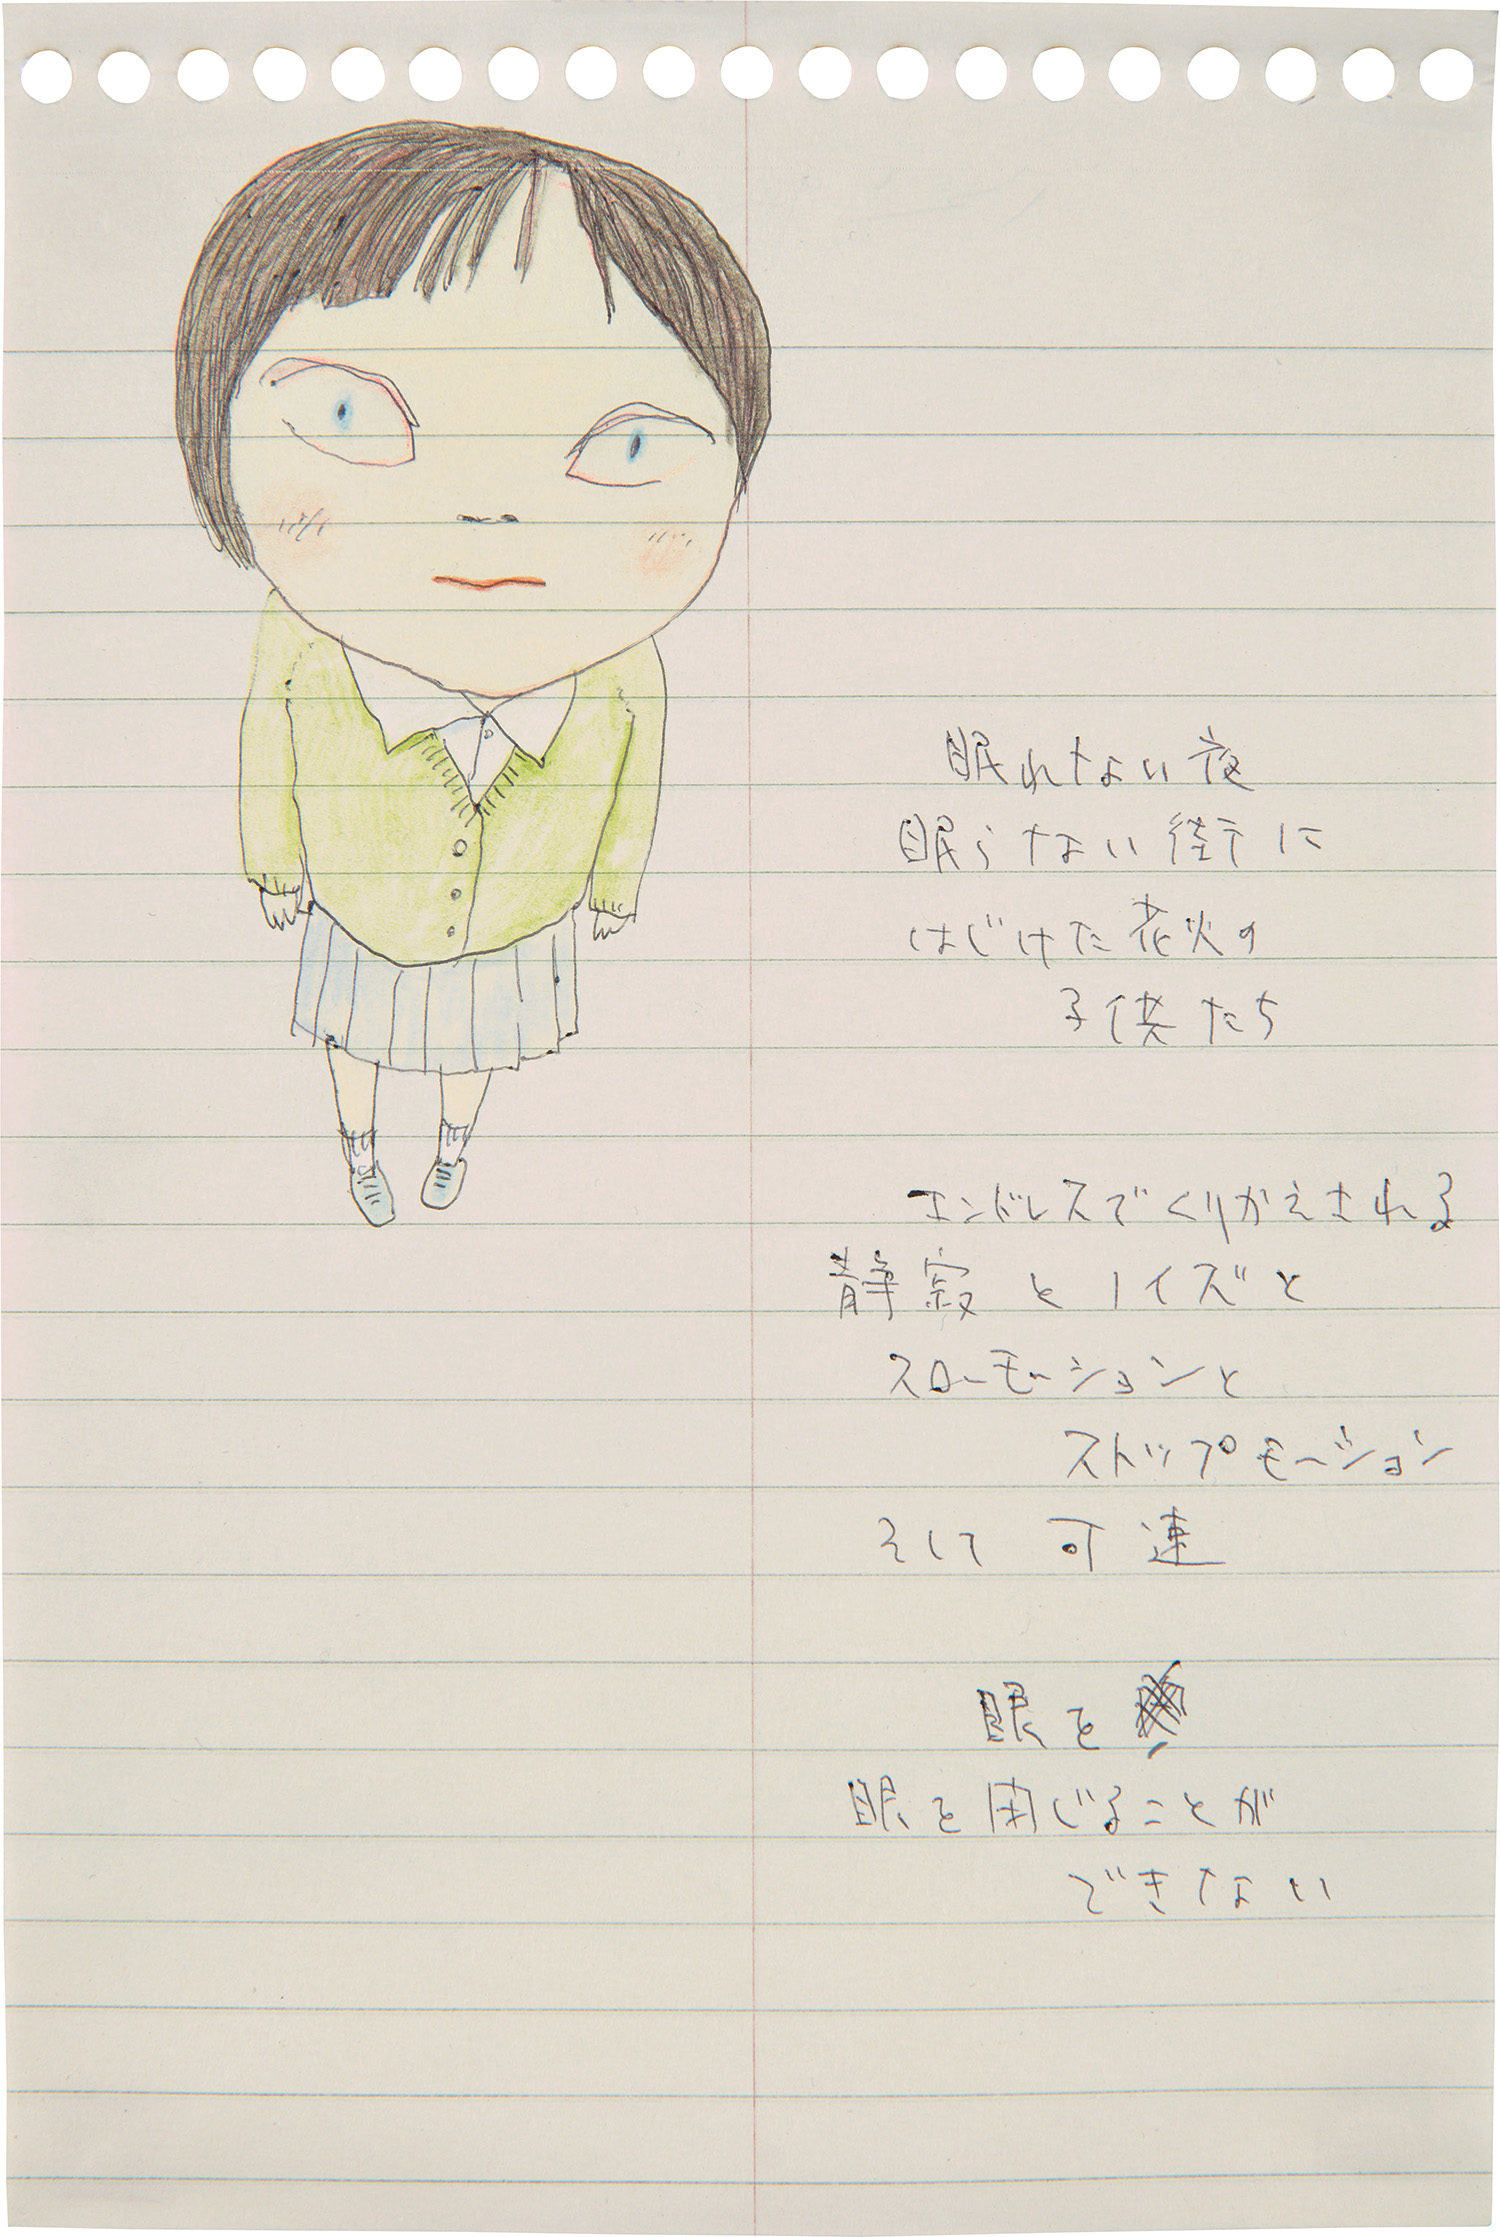 眠れない夜
眠らない街に
はじけた花火の
子供たち
エンドレスでくりかえされる
静寂とノイズと
スローモーションと
ストップモーション
そして 可速
眼を
眼を閉じることが
できない